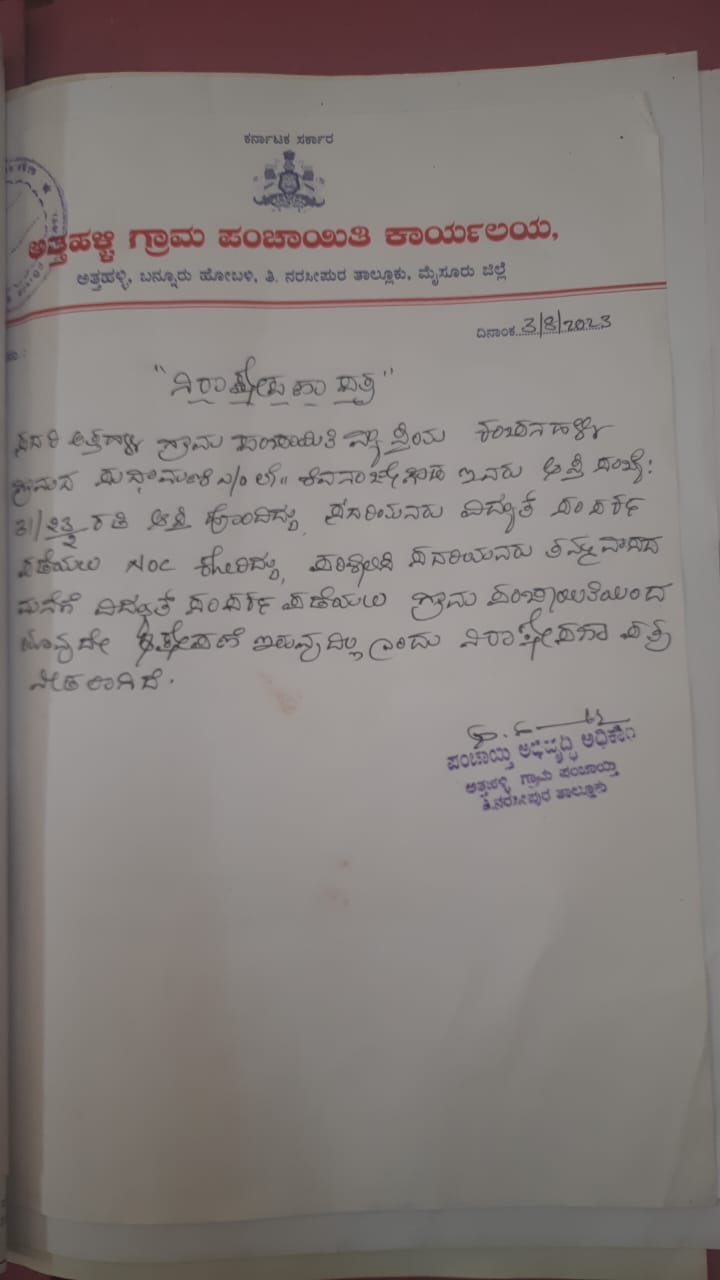 ಕರ್ನಾಟಕ ಸರ್ಕಾರ
ಅತ್ತಹಳ್ಳಿ ಗ್ರಾಮ ಪಂಚಾಯಿತಿ ಕಾರ್ಯಲಯ,
ಅತ್ತಹಳ್ಳಿ, ಬನ್ನೂರು ಹೋಬಳಿ, ತಿ. ನರಸೀಪುರ ತಾಲ್ಲೂಕು, ಮೈಸೂರು ಜಿಲ್ಲೆ
ದಿನಾಂಕ 3/8/2023
"ನಿರಾಕ್ಷೇಪಣಾ ಪತ್ರ"
ಸದರಿ ಅತ್ತಹಳ್ಳಿ ಗ್ರಾಮ ಪಂಚಾಯಿತಿ ವ್ಯಾಪ್ತಿಯ
ಗ್ರಾಮದ ಇವರು ಆಸ್ತಿ ಸಂಖ್ಯೆ:
ರ ಆಸ್ತಿ ಹೊಂದಿದ್ದು, ಸದರಿಯವರು ವಿದ್ಯುತ್ ಸಂಪರ್ಕ
ಪಡೆಯಲು NOC ಕೋರಿದ್ದು, ಸದರಿಯವರು ವಾಸದ
ಮನೆಗೆ ವಿದ್ಯುತ್ ಸಂಪರ್ಕ ಪಡೆಯಲು ಗ್ರಾಮ ಪಂಚಾಯಿತಿಯಿಂದ
ಯಾವುದೇ ಇರುವುದಿಲ್ಲ ಎಂದು ನಿರಾಕ್ಷೇಪಣಾ ಪತ್ರ
ನೀಡಲಾಗಿದೆ.
ಪಂಚಾಯ್ತಿ ಅಭಿವೃದ್ಧಿ ಅಧಿಕಾರಿ
ಅತ್ತಹಳ್ಳಿ ಗ್ರಾಮ ಪಂಚಾಯ್ತಿ
ತಿ.ನರಸೀಪುರ ತಾಲ್ಲೂಕು